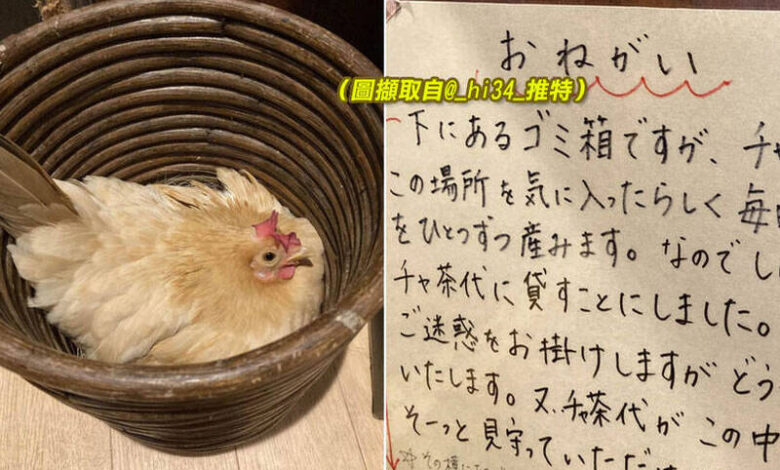 おねがい
（圖擷取自@_hi34_推特）
下にあるゴミ箱ですが、チャ
この場所を気に入ったらしく 毎
をひとつずつ産みます。なのでし
チャ茶代に貸すことにしました。
ご迷惑をお掛けしますが どう
いたします。又、チャ茶代が この中
そーっと見守っていただ